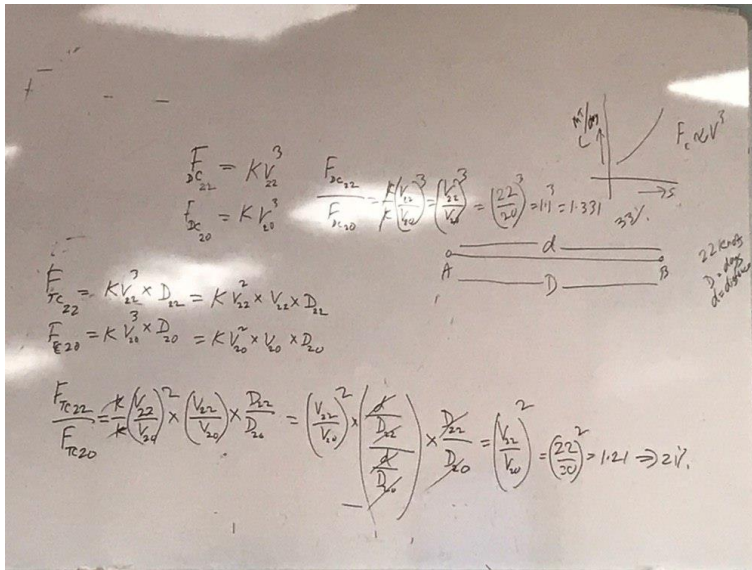 F_DC_22 = KV_22^3
F_DC_20 = KV_20^3
F_DC_22 / F_DC_20 = K/K (V_22/V_20)^3 = (V_22/V_20)^3 = (22/20)^3 = 1.1^3 = 1.331
33%
MT/day
F_c ∝ V^3
→ S
d
A B
D
22 Knots
D = days
d = distance
F_TC_22 = KV_22^3 × D_22 = KV_22^2 × V_22 × D_22
F_TC20 = KV_20^3 × D_20 = KV_20^2 × V_20 × D_20
F_TC22 / F_TC20 = K/K (V_22/V_20)^2 × (V_22/V_20) × D_22/D_20 = (V_22/V_20)^2 × ((d/D_22)/(d/D_20)) × D_22/D_20 = (V_22/V_20)^2 = (22/20)^2 = 1.21 ⇒ 21%